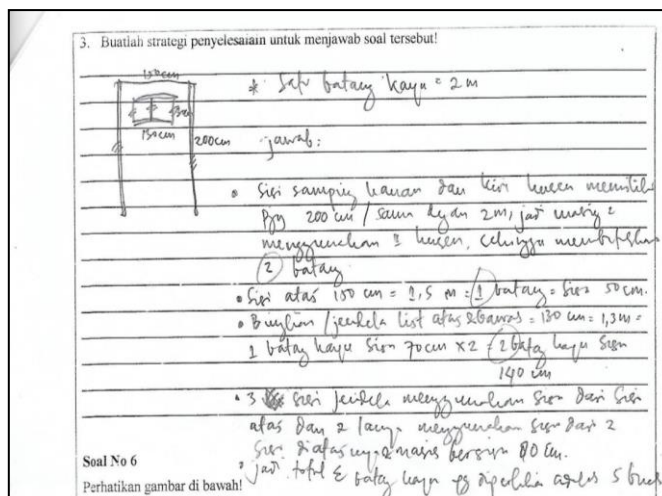 3. Buatlah strategi penyelesaiain untuk menjawab soal tersebut!
150 cm
* Satu batang kayu = 2 m
130 cm
200 cm
jawab:
• Sisi samping kanan dan kiri kusen memiliki
200 cm / sama dgn 2m, jadi masing2
menggunakan 1 kusen, sehingga membutuhkan
2 batang
• Sisi atas 150 cm = 1,5 m = 1 batang = sisa 50 cm.
• jendela list atas & bawah = 130 cm = 1,3 m =
1 batang kayu sisa 70 cm x 2 = 2 batang kayu sisa
140 cm
• 3 sisi jendela menggunakan sisa dari sisi
atas dan 2 lainnya menggunakan sisa dari 2
sisi
• jadi total batang kayu yg diperlukan adalah 5 buah
Soal No 6
Perhatikan gambar di bawah!